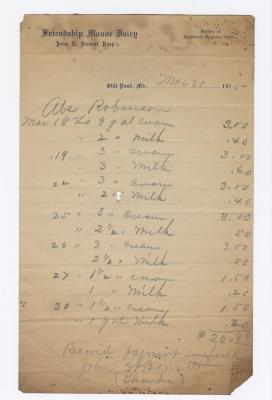 Friendship Manor Dairy
John N. Bennett, Prop'r.
Still Pond, Md., Mar 30 191
Abe Robinson
Mar. 18 To 3 gal cream 3.00
" 2 " Milk .40
.19 " 3 " cream 3.00
" 3 " Milk .60
22 " 3 " cream 3.00
" 2 " Milk .40
25 " 3 " cream 3.00
" 2 1/2 " Milk 50
26 " 3 " cream 3.00
2 1/2 " Milk .50
27 - 1 1/2 " cream 1.50
1 " Milk .20
30 " 1 1/2 " cream 1.50
" 1 gal Milk .20
$20.80
Received payment in full
John N Bennett
Thanks